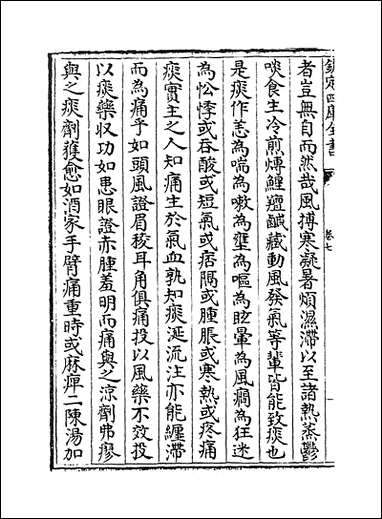 欽定四庫全書
卷七
者豈無自而然哉風搏寒凝暑煩濕滯以至諸熱蒸鬱
啖食生冷煎煿腥羶鹹藏動風發氣等輩皆能致痰也
是痰作恙為喘為嗽為壅為嘔為眩暈為風癇為狂迷
為忪悸或吞酸或短氣或痞隔或腫脹或寒熱或疼痛
痰實主之人知痛主於氣血孰知痰涎流注亦能纏滯
而為痛乎如頭風證眉稜耳角俱痛投以風藥不效投
以痰藥収功如患眼證赤腫羞明而痛與之涼劑弗瘳
與之痰劑獲愈如酒家手臂痛重時或麻痺二陳湯加